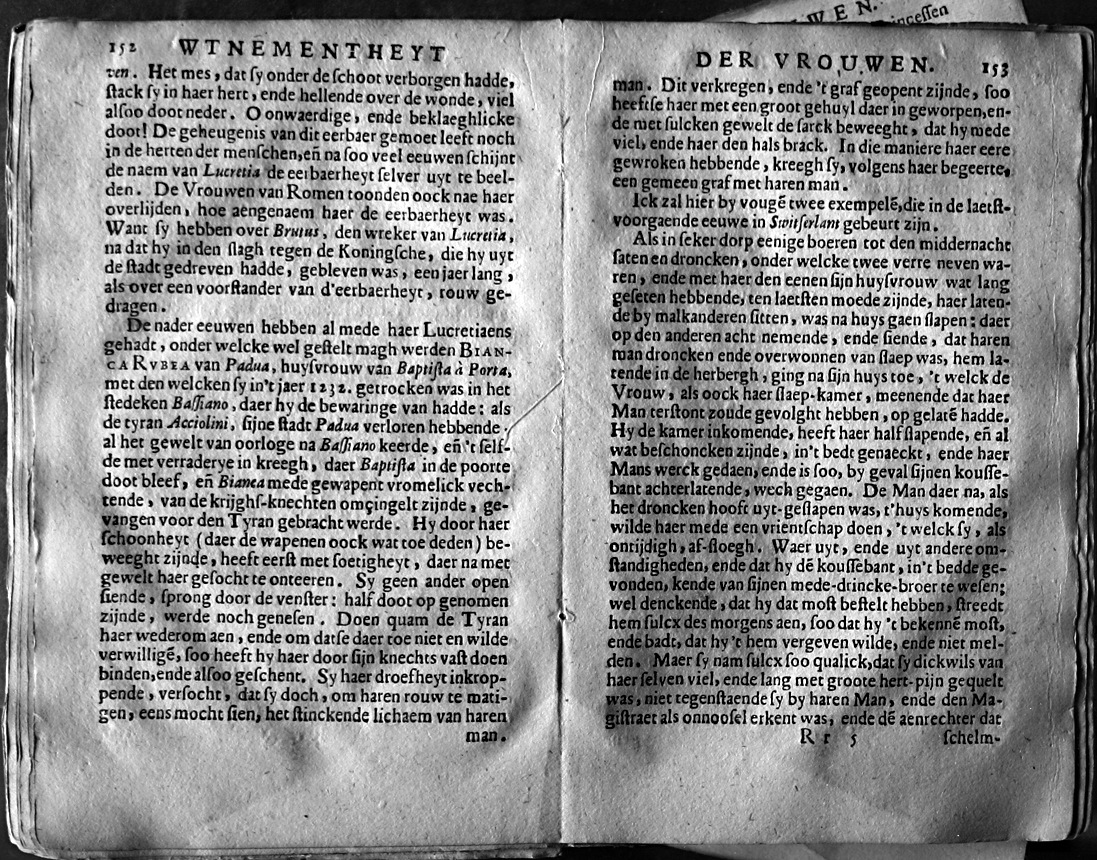 WEN.
incessen
152 WTNEMENTHEYT
ven. Het mes, dat sy onder de schoot verborgen hadde,
stack sy in haer hert, ende hellende over de wonde, viel
alsoo doot neder. O onwaerdige, ende beklaeghlicke
doot! De geheugenis van dit eerbaer gemoet leeft noch
in de herten der menschen, eñ na soo veel eeuwen schijnt
de naem van Lucretia de eerbaerheyt selver uyt te beel-
den. De Vrouwen van Romen toonden oock nae haer
overlijden, hoe aengenaem haer de eerbaerheyt was.
Want sy hebben over Brutus, den wreker van Lucretia,
na dat hy in den slagh tegen de Koningsche, die hy uyt
de stadt gedreven hadde, gebleven was, een jaer lang,
als over een voorstander van d'eerbaerheyt, rouw ge-
dragen.
De nader eeuwen hebben al mede haer Lucretiaens
gehadt, onder welcke wel gestelt magh werden BIAN-
CA RVBEA van Padua, huysvrouw van Baptista à Porta,
met den welcken sy in't jaer 1232. getrocken was in het
stedeken Bassiano, daer hy de bewaringe van hadde: als
de tyran Acciolini, sijne stadt Padua verloren hebbende
al het gewelt van oorloge na Bassiano keerde, eñ 't self-
de met verraderye in kreegh, daer Baptista in de poorte
doot bleef, eñ Bianca mede gewapent vromelick vech-
tende, van de krijghs-knechten omçingelt zijnde, ge-
vangen voor den Tyran gebracht werde. Hy door haer
schoonheyt (daer de wapenen oock wat toe deden) be-
weeght zijnde, heeft eerst met soetigheyt, daer na met
gewelt haer gesocht te onteeren. Sy geen ander open
siende, sprong door de venster: half doot op genomen
zijnde, werde noch genesen. Doen quam de Tyran
haer wederom aen, ende om datse daer toe niet en wilde
verwilligẽ, soo heeft hy haer door sijn knechts vast doen
binden, ende alsoo geschent. Sy haer droefheyt inkrop-
pende, versocht, dat sy doch, om haren rouw te mati-
gen, eens mocht sien, het stinckende lichaem van haren
man.
DER VROUWEN. 153
man. Dit verkregen, ende 't graf geopent zijnde, soo
heeftse haer met een groot gehuyl daer in geworpen, en-
de met sulcken gewelt de sarck beweeght, dat hy mede
viel, ende haer den hals brack. In die maniere haer eere
gewroken hebbende, kreegh sy, volgens haer begeerte,
een gemeen graf met haren man.
Ick zal hier by vougẽ twee exempelẽ, die in de laetst-
voorgaende eeuwe in Switserlant gebeurt zijn.
Als in seker dorp eenige boeren tot den middernacht
saten en droncken, onder welcke twee verre neven wa-
ren, ende met haer den eenen sijn huysvrouw wat lang
geseten hebbende, ten laetsten moede zijnde, haer laten-
de by malkanderen sitten, was na huys gaen slapen: daer
op den anderen acht nemende, ende siende, dat haren
man droncken ende overwonnen van slaep was, hem la-
tende in de herbergh, ging na sijn huys toe, 't welck de
Vrouw, als oock haer slaep-kamer, meenende dat haer
Man terstont zoude gevolght hebben, op gelatẽ hadde.
Hy de kamer inkomende, heeft haer half slapende, eñ al
wat beschoncken zijnde, in't bedt genaeckt, ende haer
Mans werck gedaen, ende is soo, by geval sijnen kousse-
bant achterlatende, wech gegaen. De Man daer na, als
het droncken hooft uyt-geslapen was, t'huys komende,
wilde haer mede een vrientschap doen, 't welck sy, als
ontijdigh, af-sloegh. Waer uyt, ende uyt andere om-
standigheden, ende dat hy dẽ koussebant, in't bedde ge-
vonden, kende van sijnen mede-drincke-broer te wesen;
wel denckende, dat hy dat most bestelt hebben, streedt
hem sulcx des morgens aen, soo dat hy 't bekennẽ most,
ende badt, dat hy 't hem vergeven wilde, ende niet mel-
den. Maer sy nam sulcx soo qualick, dat sy dickwils van
haer selven viel, ende lang met groote hert-pijn gequelt
was, niet tegenstaende sy by haren Man, ende den Ma-
gistraet als onnoosel erkent was, ende dẽ aenrechter dat
R r 5 schelm-